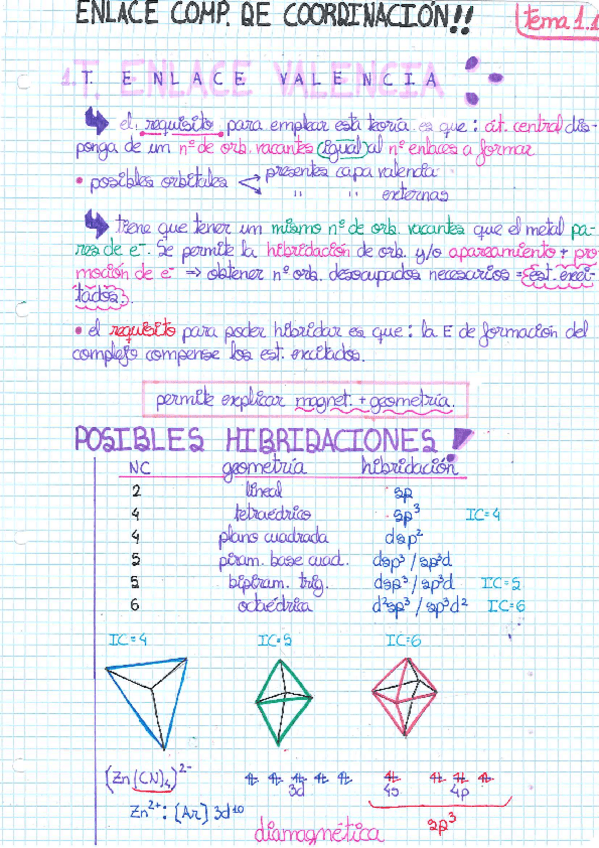 ENLACE COMP. DE COORDINACIÓN!!
tema 1.1
1. T. ENLACE VALENCIA
el requisito para emplear esta teoría es que : át. central dis-
ponga de um nº de orb. vacantes (igual) al nº enlaces a formar
• posibles orbitales
presentes capa valencia
" " externas
tiene que tener um mismo nº de orb. vacantes que el metal pa-
res de e⁻. Se permite la hibridación de orb. y/o apareamiento + pro
moción de e⁻ ⇒ obtener nº orb. desocupados necesarios = est. exci-
tados.
• el requisito para poder hibridar es que : la E de formación del
complejo compense los est. excitados.
permite explicar magnet. + geometría.
POSIBLES HIBRIDACIONES
NC geometría hibridación
2 lineal sp
4 tetraédrico sp³ IC=4
4 plano cuadrada dsp²
5 piram. base cuad. dsp³ / sp³d
5 bipiram. trig. dsp³ / sp³d IC=5
6 octaédrica d²sp³ / sp³d² IC=6
IC=4 IC=5 IC=6
(Zn(CN)₄)²⁻
3d 4s 4p
Zn²⁺: [Ar] 3d¹⁰
sp³
diamagnética